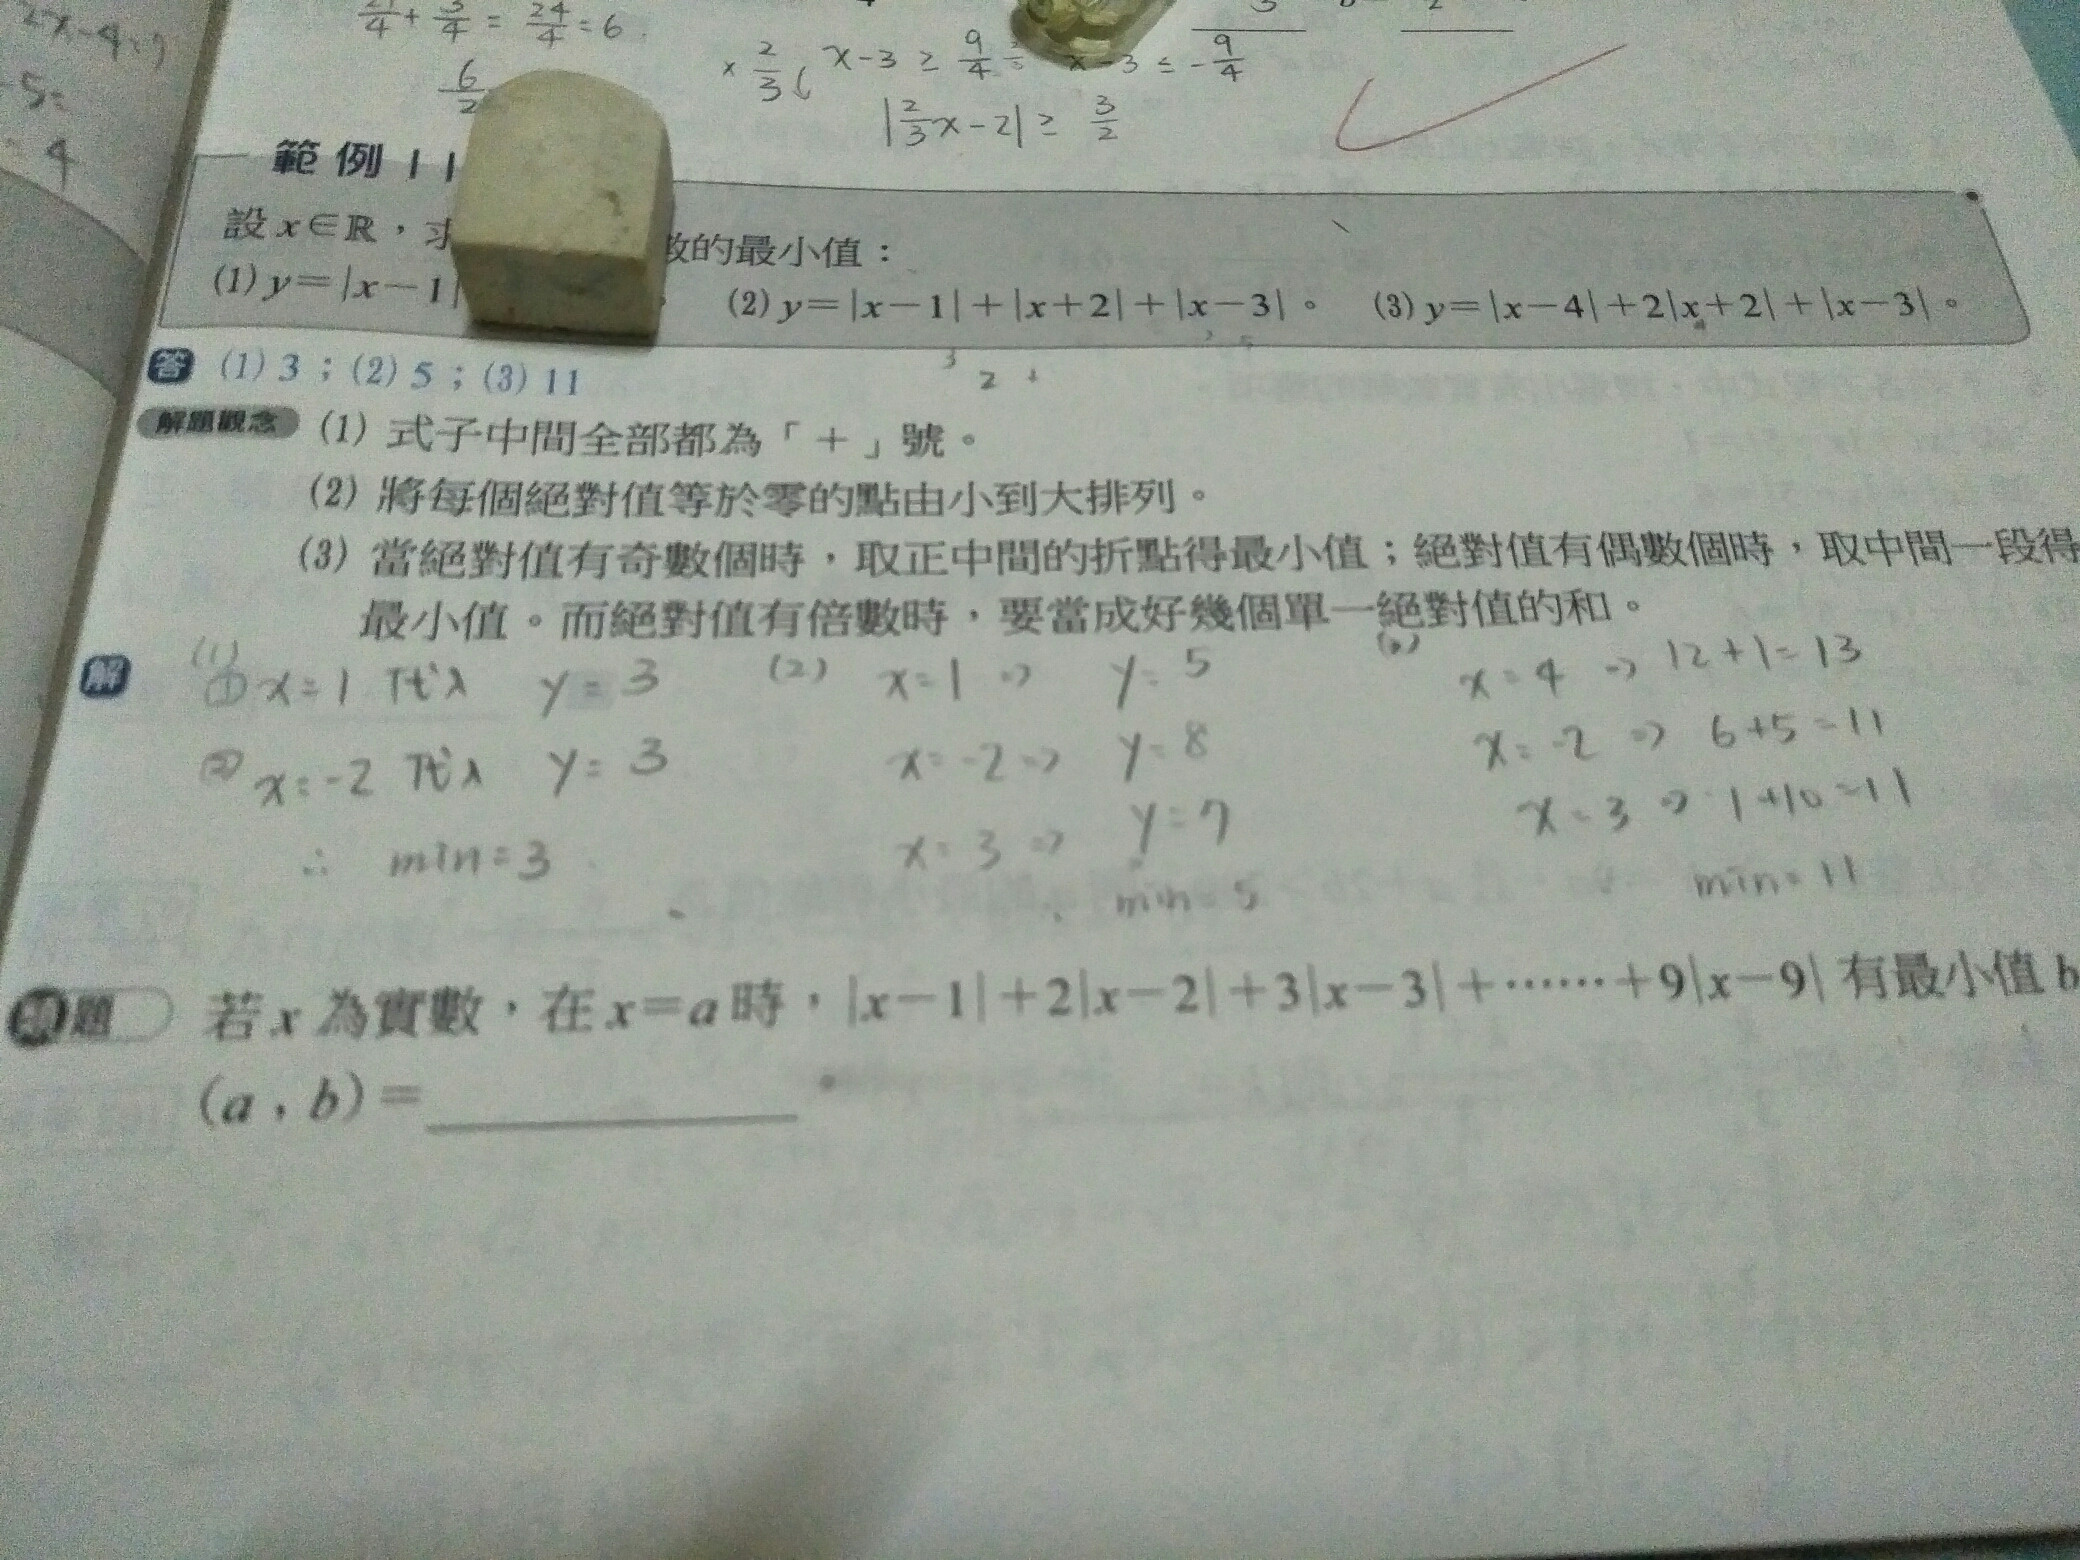 2x-4=7
-5=
4
21/4 + 3/4 = 24/4 = 6
6/2
× 2/3 ( x-3 ≥ 9/4 x-3 ≤ -9/4
|2/3x-2| ≥ 3/2
範例 11
設 x∈ℝ,求 數的最小值:
(1) y=|x-1| (2) y=|x-1|+|x+2|+|x-3|。 (3) y=|x-4|+2|x+2|+|x-3|。
答 (1) 3;(2) 5;(3) 11
3 2 +
解題觀念 (1) 式子中間全部都為「+」號。
(2) 將每個絕對值等於零的點由小到大排列。
(3) 當絕對值有奇數個時,取正中間的折點得最小值;絕對值有偶數個時,取中間一段得
最小值。而絕對值有倍數時,要當成好幾個單一絕對值的和。
解 (1) ① x=1 代入 y=3 (2) x=1 => y=5 (3) x=4 => 12+1=13
② x=-2 代入 y=3 x=-2 => y=8 x=-2 => 6+5=11
∴ min=3 x=3 => y=7 x=3 => 1+10=11
min=5 min=11
題 若 x 為實數,在 x=a 時,|x-1|+2|x-2|+3|x-3|+……+9|x-9| 有最小值 b
(a,b)=________。